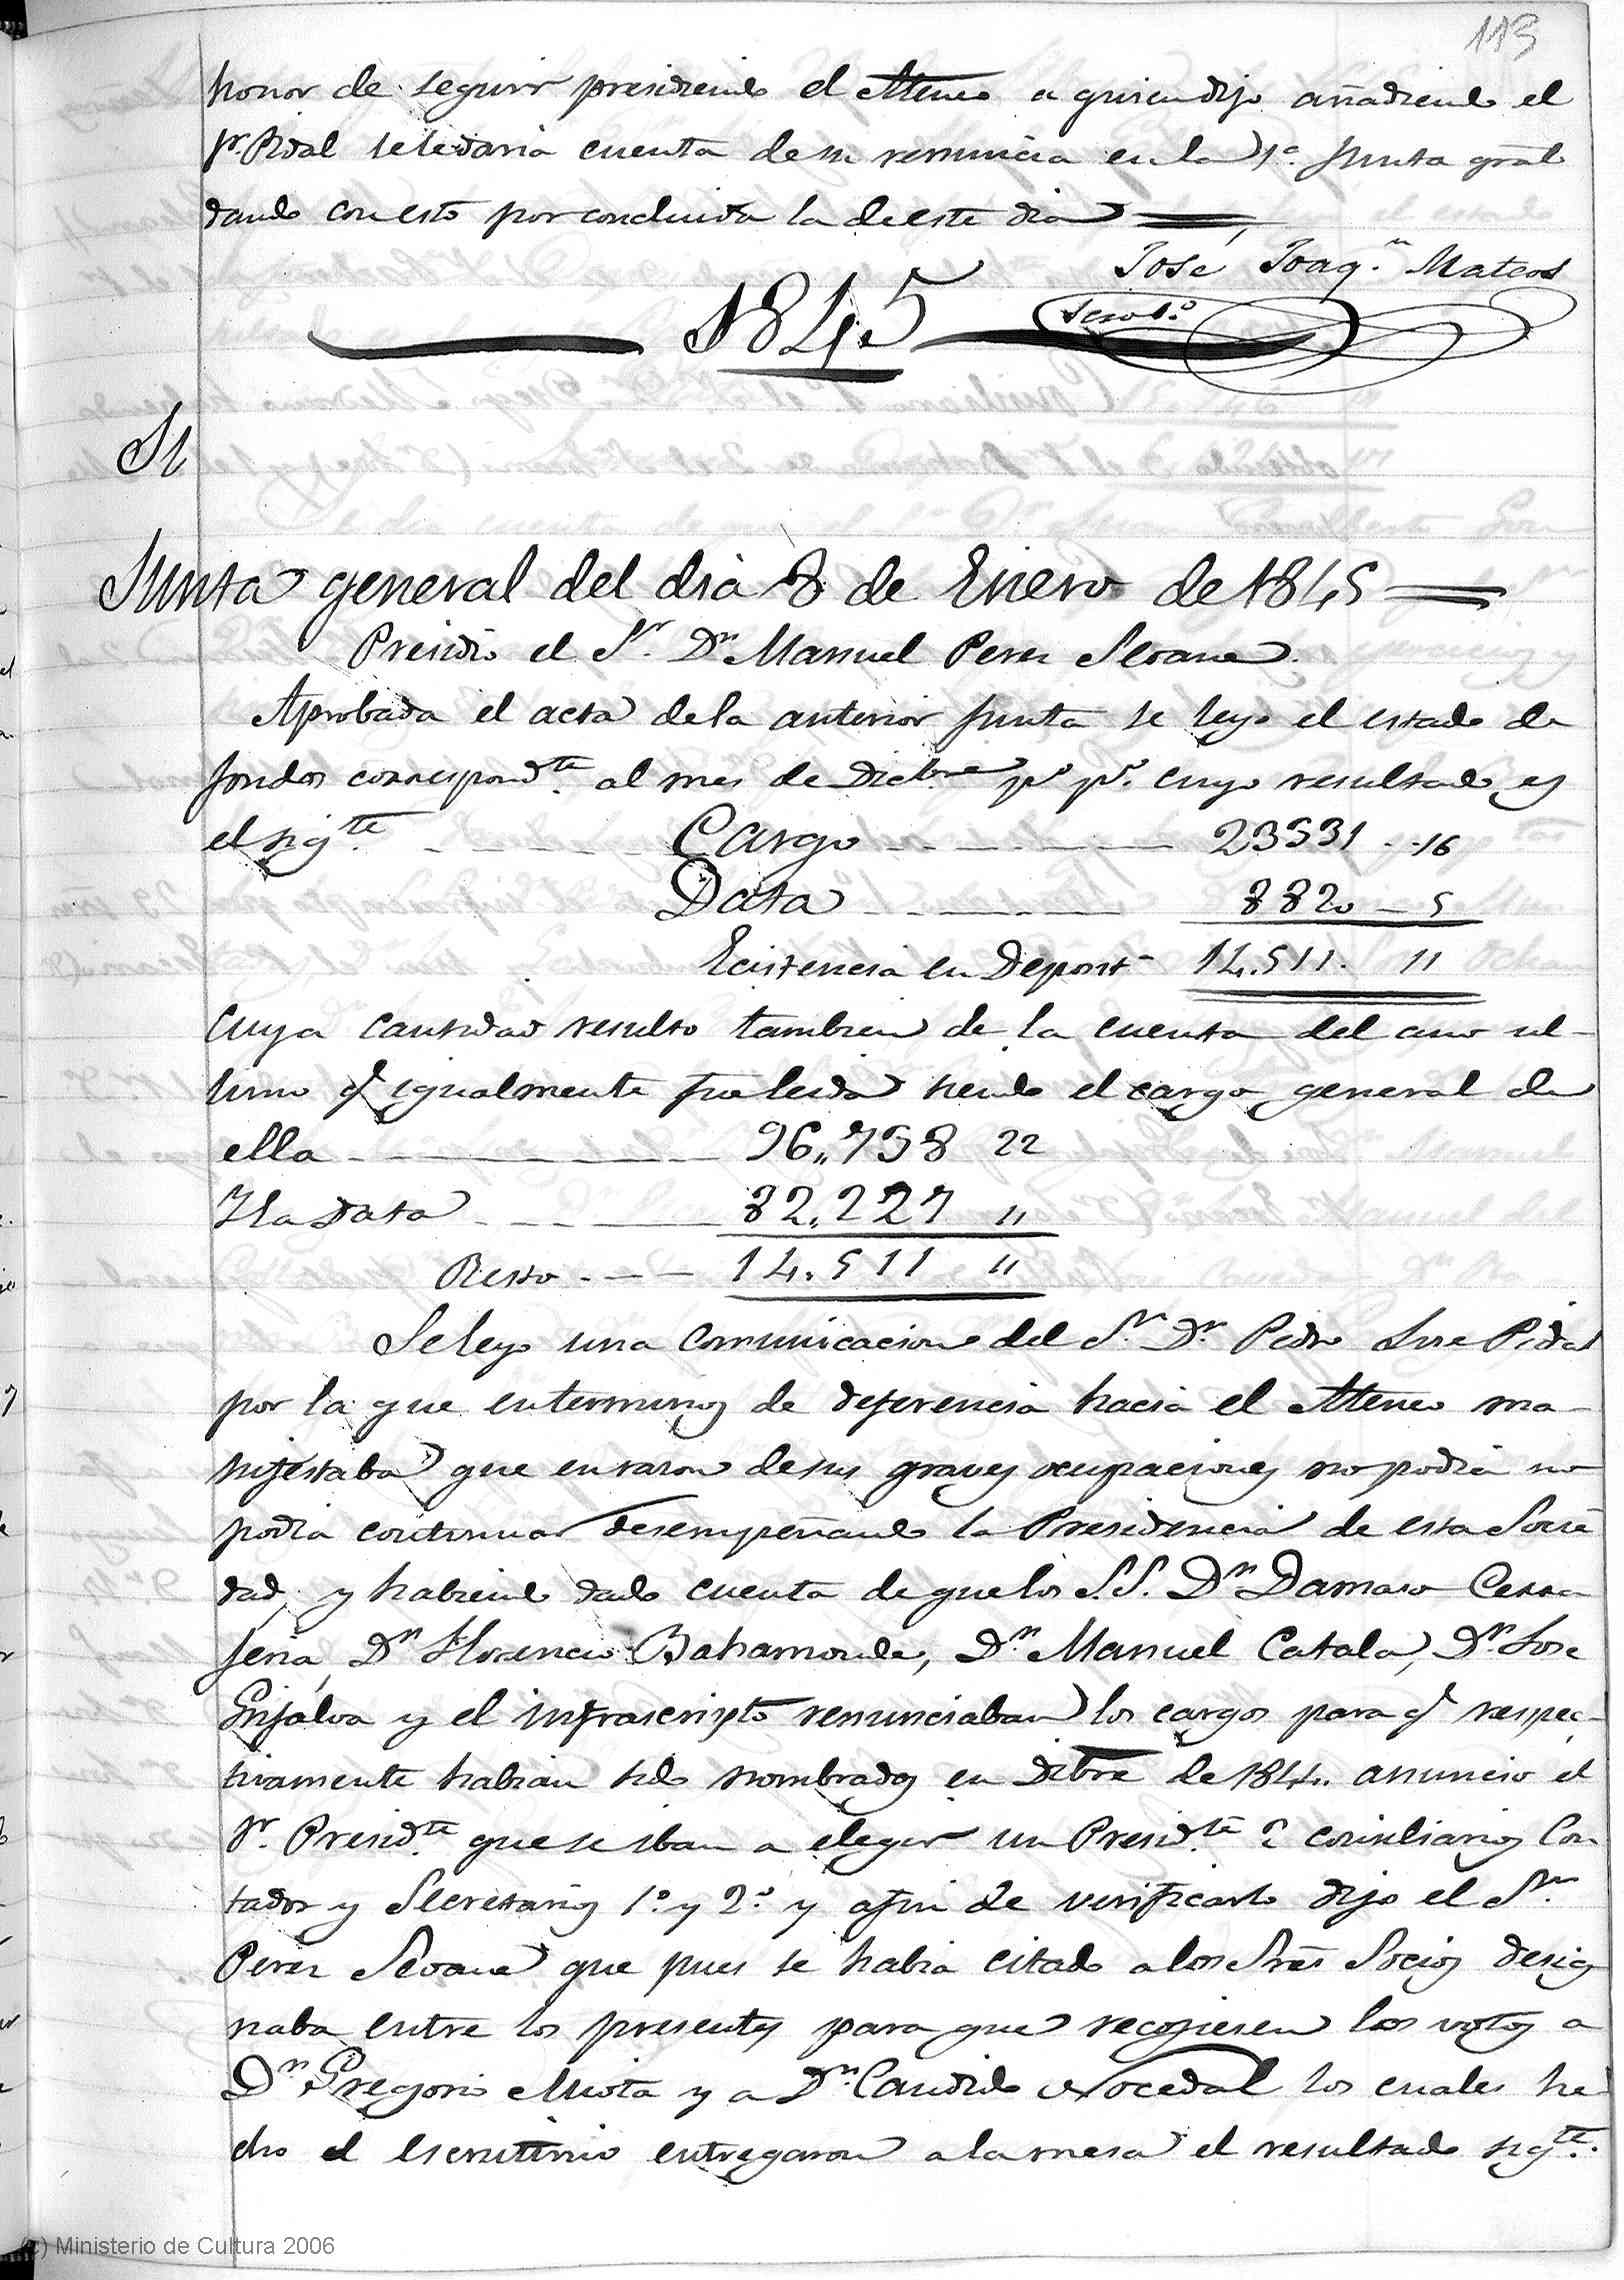 113
honor de seguir presidiendo el Ateneo a quien dijo añadiendo el
Sr. Pidal se le daria cuenta de su renuncia en la 1ª Junta gral
dando con esto por concluida la de este dia
José Joaq.n Mateos
1845
Secret.o
Junta general del dia 8 de Enero de 1845
Presidió el Sr. Dn Manuel Perez Seoane.
Aprobada el acta de la anterior junta se leyo el estado de
fondos correspond.te al mes de Dicbre pº pº. cuyo resultado es
el sig.te Cargo 23331 16
Data 8820 5
Ecistencia en Deposit 14.511. 11
Cuya cantidad resultó tambien de la cuenta del año ul-
timo q igualmente fue leida siendo el cargo general de
ella 96,,738 22
Y la Data 82.227 ,,
Resto 14.511 ,,
Se leyo una comunicacion del Sr. Dn. Pedro Jose Pidal
por la que en terminos de deferencia hacia el Ateneo ma-
nifestaba que en razon de sus graves ocupaciones no podia no
podia continuar desempeñando la Presidencia de esta Socie
dad, y habiendo dado cuenta de que los S.S. Dn Damaso Cerra
geria, Dn Florencio Bahamonde, Dn Manuel Catala, Dn Jose
Grijalva y el infrascripto renunciaban los cargos para q respec-
tivamente habian sido nombrados en Dibre de 1844. anuncio el
Sr. Presid.te que se iban a elegir un Presid.te 2 consiliarios Con
tador y Secretarios 1º y 2º y a fin de verificarlo dijo el Sr.
Perez Seoane que pues se habia citado a los Sres Socios desig
naba entre los presentes para que recogiesen los votos a
Dn Gregorio Miota y a Dn. Candido Nocedal los cuales he
cho el escrutinio entregaron a la mesa el resultado sig.te.
(c) Ministerio de Cultura 2006